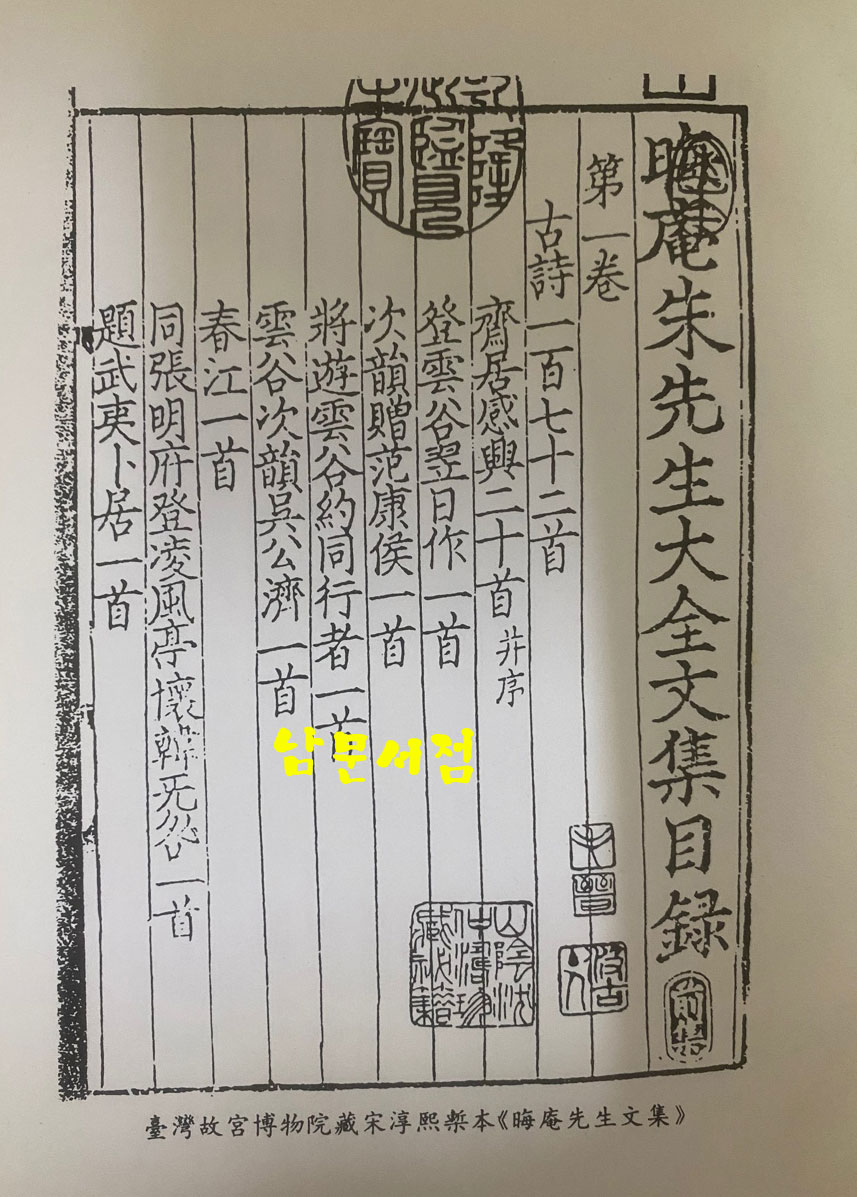 晦庵朱先生大全文集目録
第一卷
古詩一百七十二首
齋居感興二十首 并序
登雲谷翌日作一首
次韻贈范康侯一首
將遊雲谷約同行者一首
雲谷次韻吳公濟一首
春江一首
同張明府登凌風亭懷韓无咎一首
題武夷卜居一首
毛晉
山陰沈仲濤珍藏秘籍
남문서점
臺灣故宮博物院藏宋淳熙槧本《晦庵先生文集》